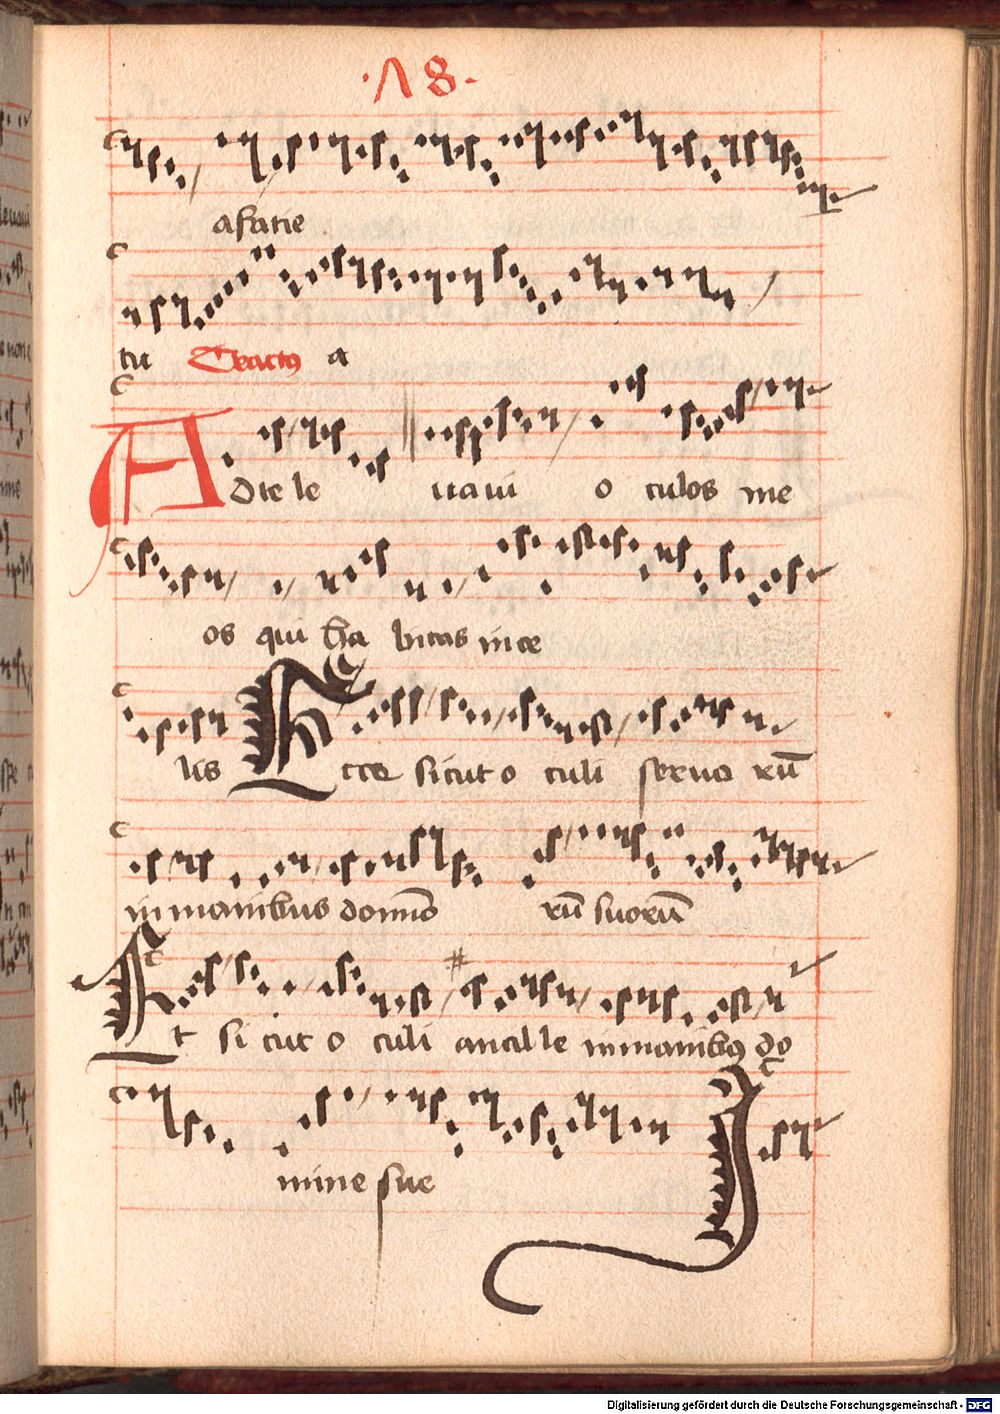 ·18·
a facie
tu Tractus a
Ad te le uaui o culos me
os qui ha bitas in ce
lis Ecce sicut o culi seruo rū
in manibus domino rū suorū
Et si cut o culi ancil le in manibus do
mine sue I
Digitalisierung gefördert durch die Deutsche Forschungsgemeinschaft - DFG